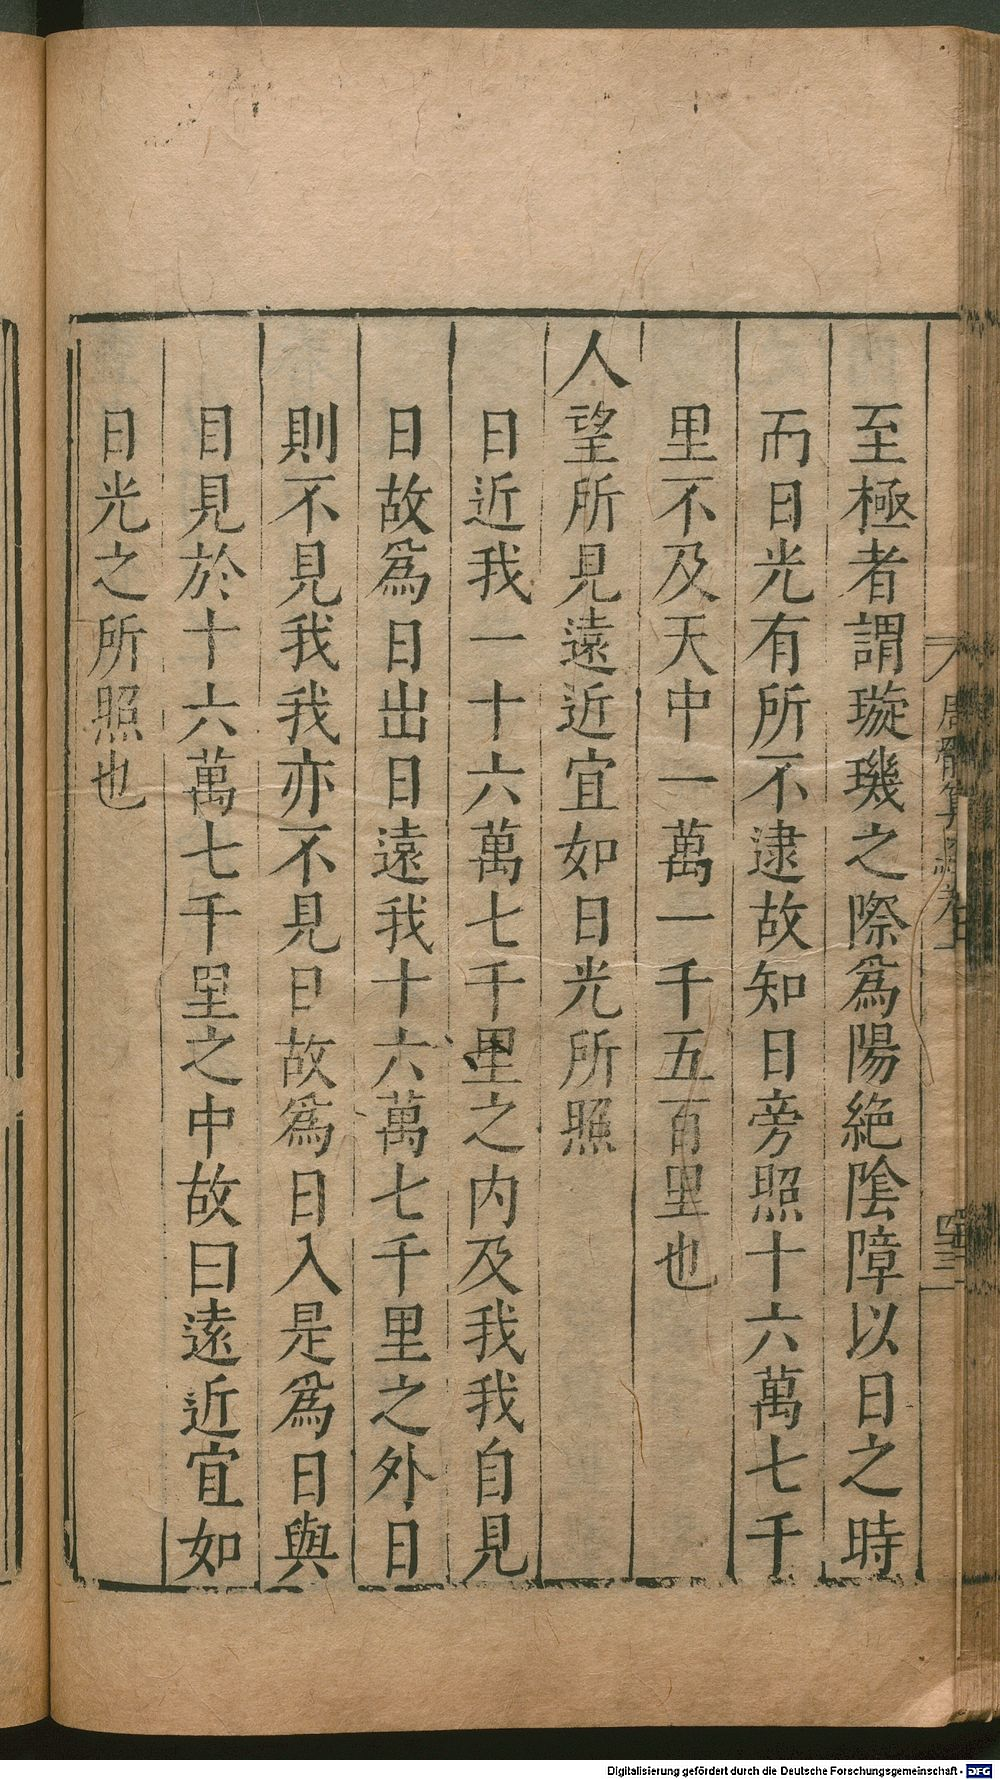 至極者謂璇璣之際爲陽絶陰障以日之時
而日光有所不逮故知日旁照十六萬七千
里不及天中一萬一千五百里也
人望所見遠近宜如日光所照
日近我一十六萬七千里之内及我我自見
日故爲日出日遠我十六萬七千里之外日
則不見我我亦不見日故爲日入是爲日與
目見於十六萬七千里之中故曰遠近宜如
日光之所照也
周髀算經卷上
四三
Digitalisierung gefördert durch die Deutsche Forschungsgemeinschaft - DFG